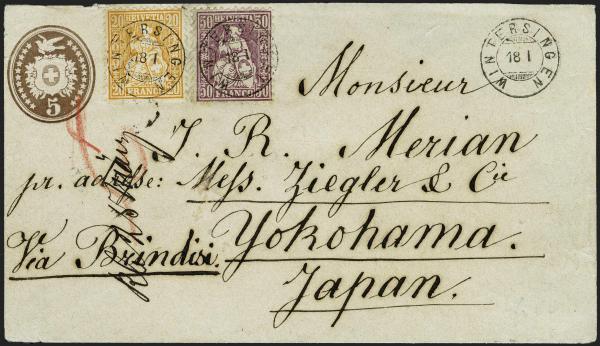 5
20 HELVETIA 20
20 FRANCO 20
50 HELVETIA 50
50 FRANCO 50
WINTERSINGEN
18 I
WINTERSINGEN
18 I
WINTERSINGEN
18 I
Monsieur
J. R. Merian
pr. adresse: Mess. Ziegler & Cie
Via Brindisi. Yokohama.
Japan.